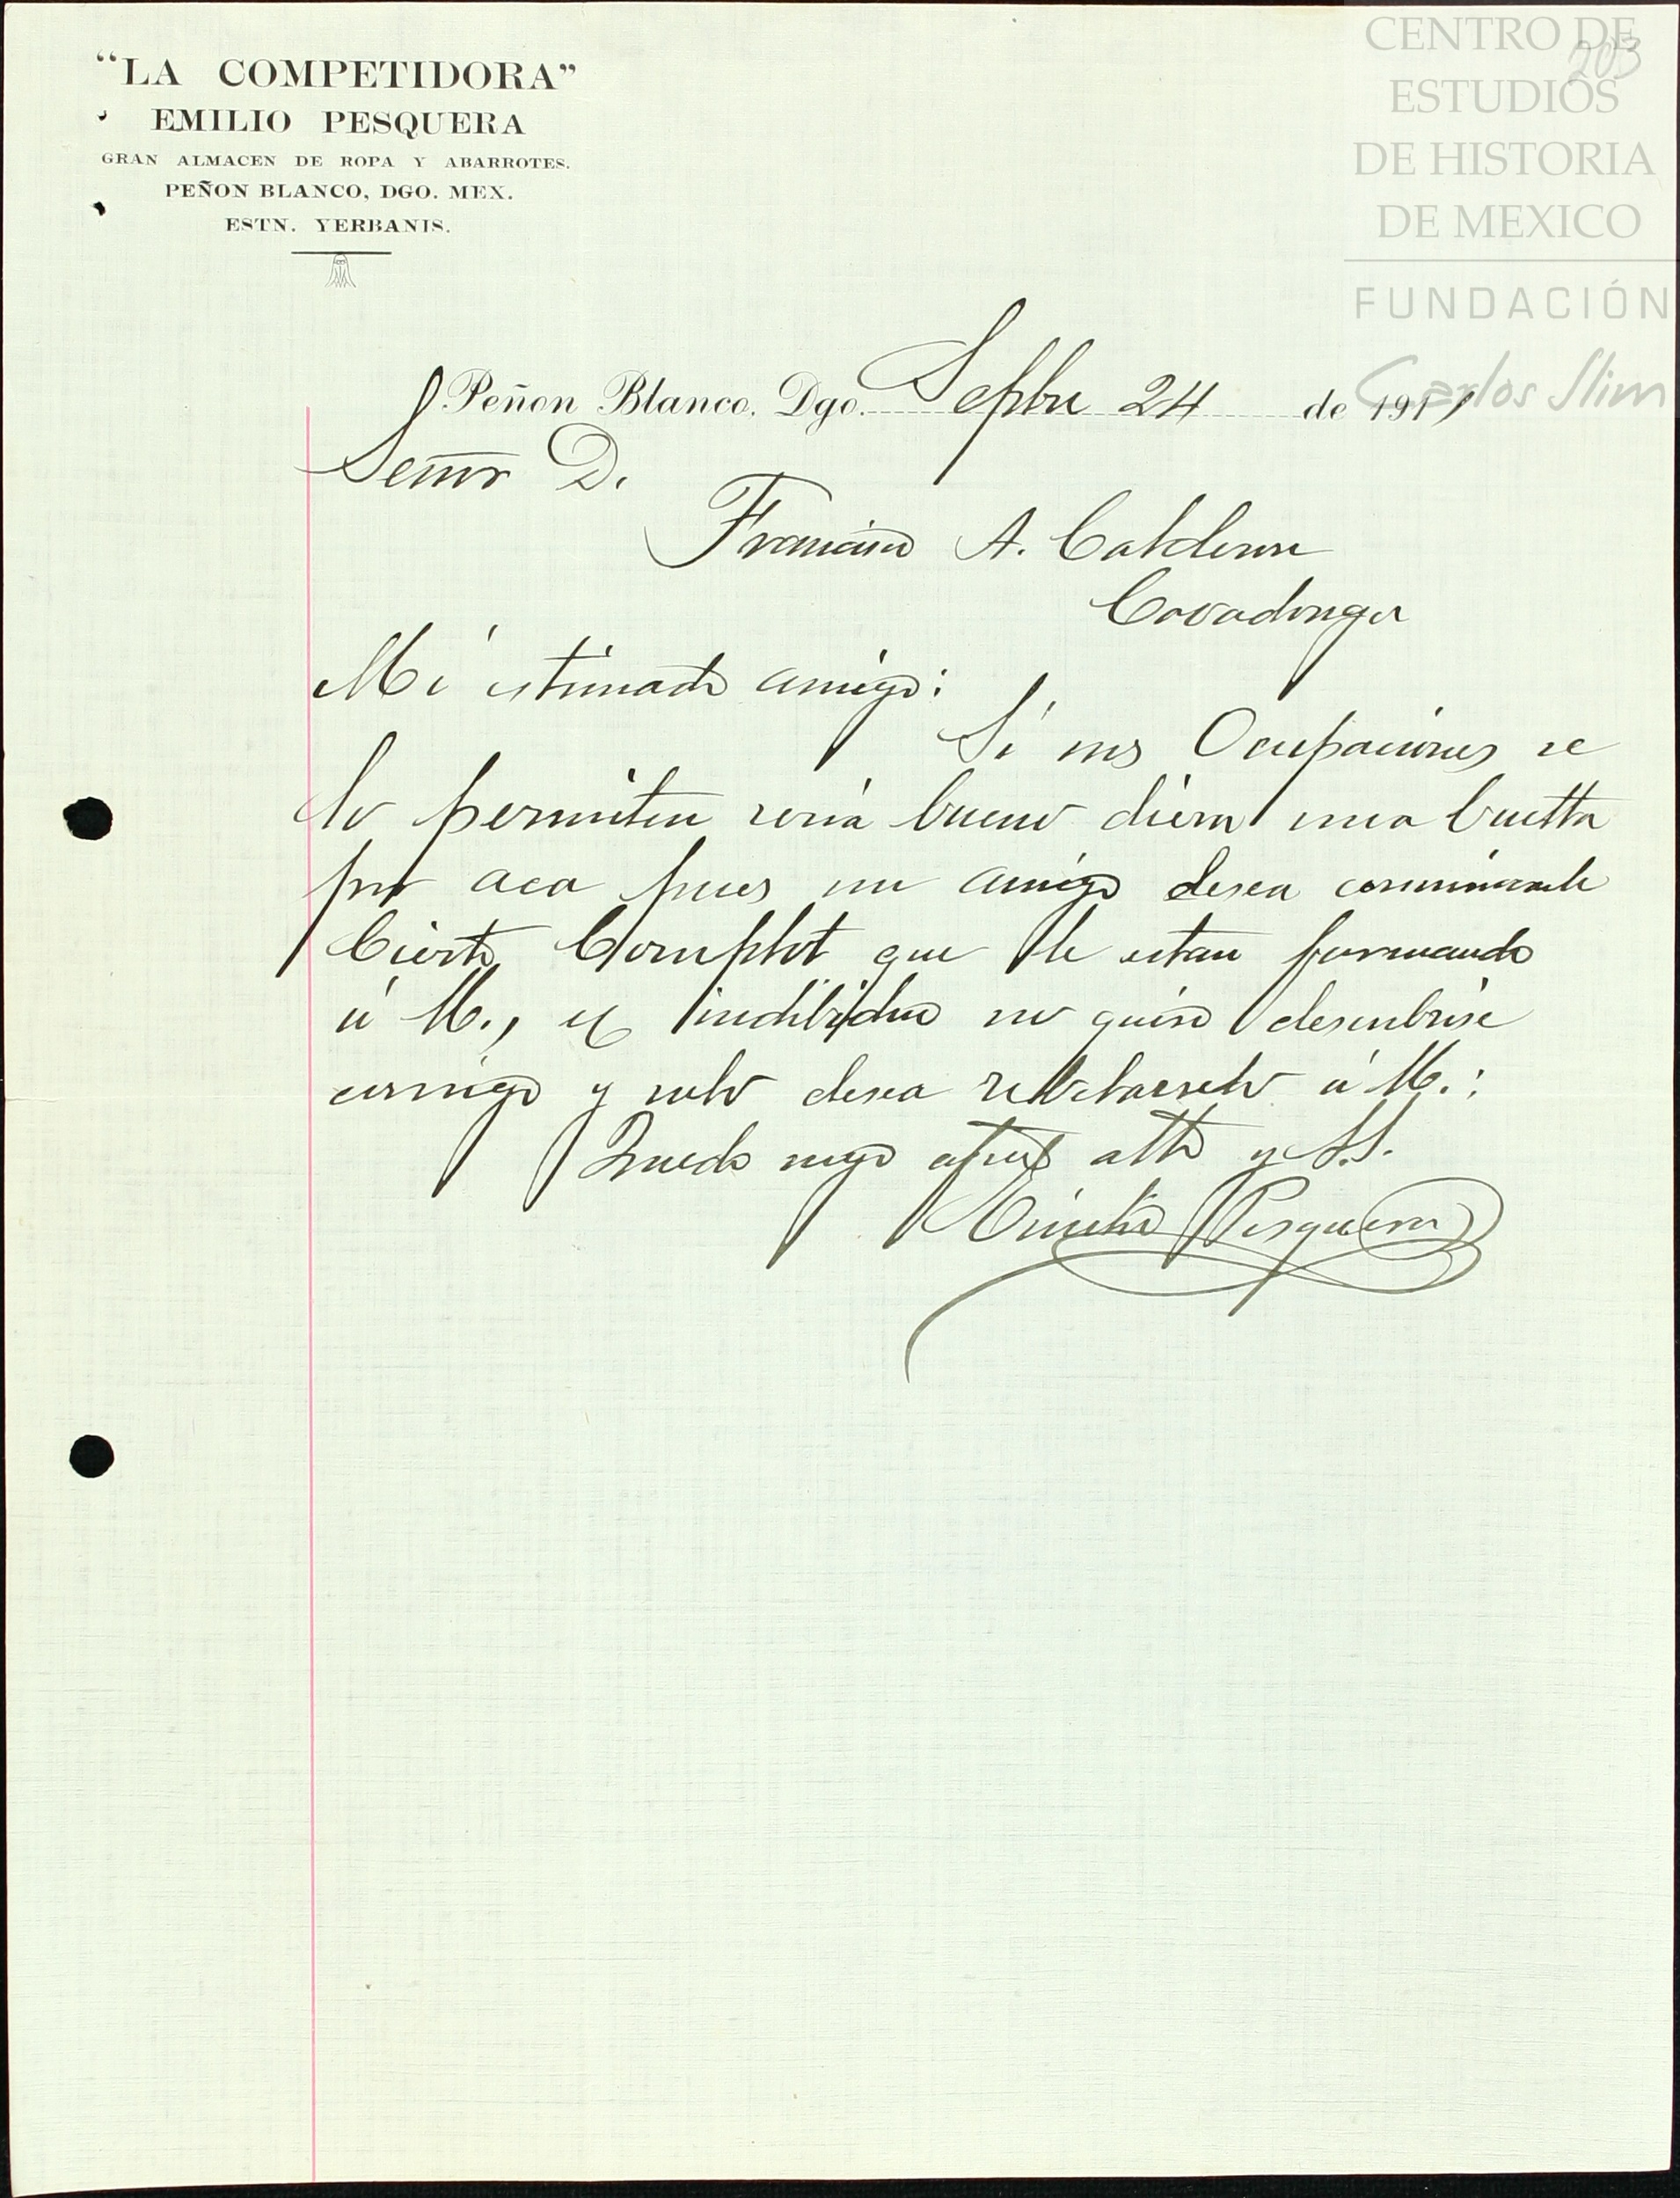 "LA COMPETIDORA"
EMILIO PESQUERA
GRAN ALMACEN DE ROPA Y ABARROTES.
PEÑON BLANCO, DGO. MEX.
ESTN. YERBANIS.
CENTRO DE
ESTUDIOS
DE HISTORIA
DE MEXICO
FUNDACIÓN
Carlos Slim
203
Peñon Blanco, Dgo. Sepbre 24 de 1911
Señor D.
Francisco A. Calderon
Covadonga
Mi estimado amigo:
Si sus Ocupaciones se
lo permiten seria bueno diera una buelta
por aca pues un amigo desea comunicarle
Cierto Complot que le estan formando
á U., el indibiduo no quiso descubrirse
conmigo y solo desea rebelarselo á U.:
Quedo suyo afmo atto y S.S.
Emilio Pesquera